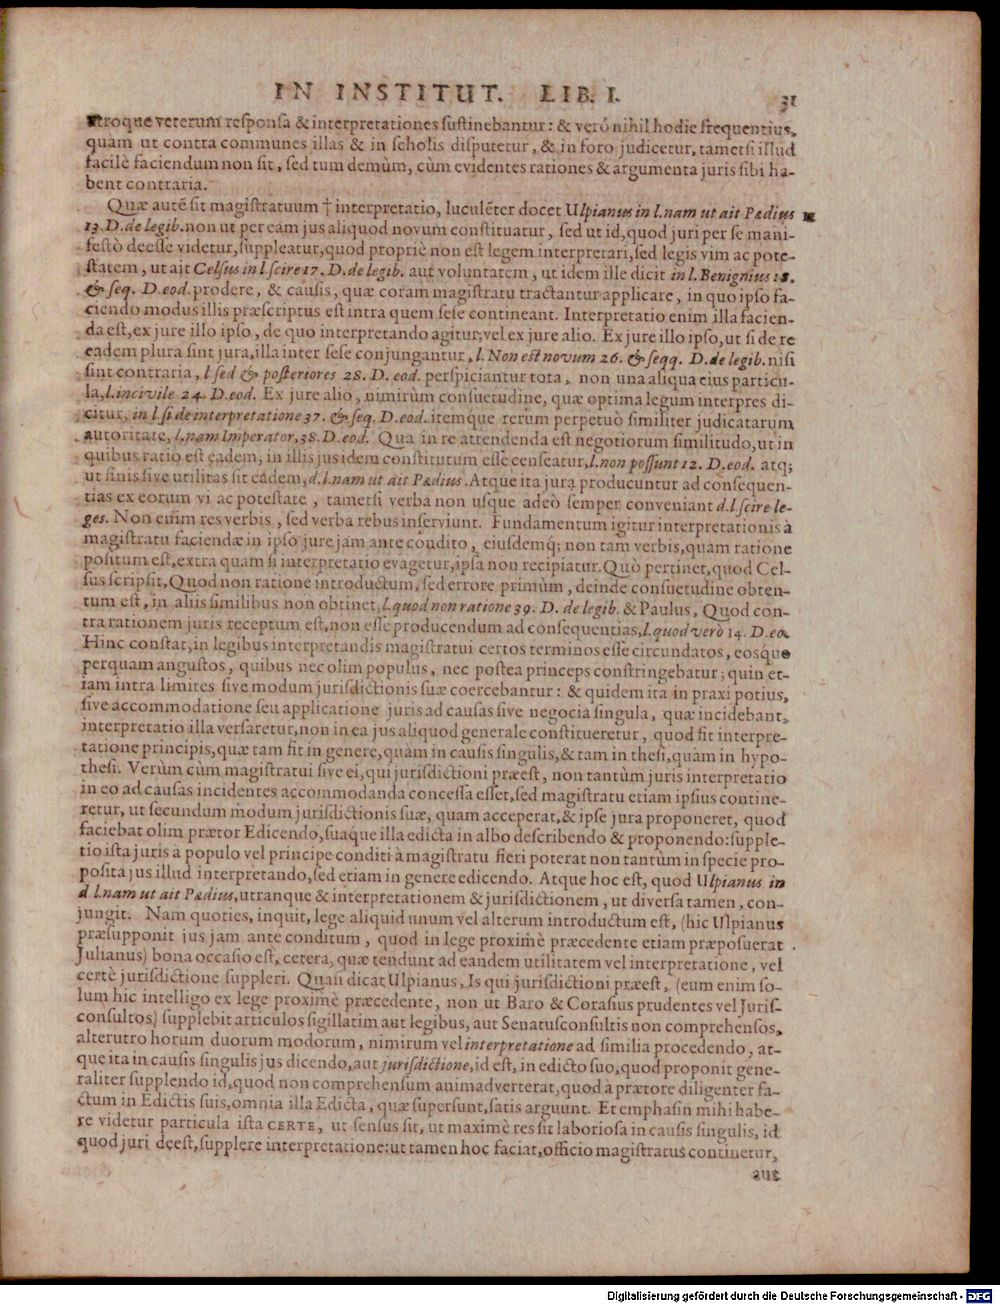 IN INSTITUT. LIB. I. 31
utroque veterum responsa & interpretationes sustinebantur: & veró nihil hodie frequentius,
quàm ut contra communes illas & in scholis disputetur, & in foro judicetur, tametsi illud
facilè faciendum non sit, sed tum demùm, cùm evidentes rationes & argumenta juris sibi ha-
bent contraria.
Quæ autē sit magistratuum † interpretatio, luculēter docet Ulpianus in l. nam ut ait Pædius
13. D. de legib. non ut per eam jus aliquod novum constituatur, sed ut id, quod juri per se mani-
festò deesse videtur, suppleatur, quod propriè non est legem interpretari, sed legis vim ac pote-
statem, ut ait Celsus in l. scire 17. D. de legib. aut voluntatem, ut idem ille dicit in l. Benignius 18.
& seq. D. eod. prodere, & causis, quæ coram magistratu tractantur applicare, in quo ipso fa-
ciendo modus illis præscriptus est intra quem sese contineant. Interpretatio enim illa facien-
da est, ex jure illo ipso, de quo interpretando agitur; vel ex jure alio. Ex jure illo ipso, ut si de re
eadem plura sint jura, illa inter sese conjungantur, l. Non est novum 26. & seqq. D. de legib. nisi
sint contraria, l sed & posteriores 28. D. eod. perspiciantur tota, non una aliqua eius particu-
la, l. incivile 24. D. eod. Ex jure alio, nimirùm consuetudine, quæ optima legum interpres di-
citur, in l. si de interpretatione 37. & seq. D. eod. itemq́ue rerum perpetuò similiter judicatarum
autoritate, l. nam Imperator, 38. D. eod. Qua in re attendenda est negotiorum similitudo, ut in
quibus ratio est eadem, in illis jus idem constitutum esse censeatur, l. non possunt 12. D. eod. atq;
ut finis sive utilitas sit eadem, d. l. nam ut ait Pædius. Atque ita jura producuntur ad consequen-
tias ex eorum vi ac potestate, tametsi verba non usque adeò semper conveniant d. l. scire le-
ges. Non enim res verbis, sed verba rebus inserviunt. Fundamentum igitur interpretationis à
magistratu faciendæ in ipso jure jam ante condito, eiusdemq́; non tam verbis, quàm ratione
positum est, extra quam si interpretatio evagetur, ipsa non recipiatur. Quò pertinet, quod Cel-
sus scripsit, Quod non ratione introductum, sed errore primùm, deinde consuetudine obten-
tum est, in aliis similibus non obtinet, l. quod non ratione 39. D. de legib. & Paulus, Quod con-
tra rationem juris receptum est, non esse producendum ad consequentias, l. quod verò 14. D. eo.
Hinc constat, in legibus interpretandis magistratui certos terminos esse circundatos, eosque
perquam angustos, quibus nec olim populus, nec postea princeps constringebatur; quin et-
iam intra limites sive modum jurisdictionis suæ coercebantur: & quidem ita in praxi potius,
sive accommodatione seu applicatione juris ad causas sive negocia singula, quæ incidebant,
interpretatio illa versaretur, non in ea jus aliquod generale constitueretur, quod fit interpre-
tatione principis, quæ tam fit in genere, quàm in causis singulis, & tam in thesi, quàm in hypo-
thesi. Verùm cùm magistratui sive ei, qui jurisdictioni præest, non tantùm juris interpretatio
in eo ad causas incidentes accommodanda concessa esset, sed magistratu etiam ipsius contine-
retur, ut secundum modum jurisdictionis suæ, quam acceperat, & ipse jura proponeret, quod
faciebat olim prætor Edicendo, suaque illa edicta in albo describendo & proponendo: supple-
tio ista juris à populo vel principe conditi à magistratu fieri poterat non tantùm in specie pro-
posita jus illud interpretando, sed etiam in genere edicendo. Atque hoc est, quod Ulpianus in
d l. nam ut ait Pædius, utranque & interpretationem & jurisdictionem, ut diversa tamen, con-
jungit. Nam quoties, inquit, lege aliquid unum vel alterum introductum est, (hic Ulpianus
præsupponit jus jam ante conditum, quod in lege proximè præcedente etiam præposuerat
Julianus) bona occasio est, cetera, quæ tendunt ad eandem utilitatem vel interpretatione, vel
certè jurisdictione suppleri. Quasi dicat Ulpianus, Is qui jurisdictioni præest, (eum enim so-
lum hic intelligo ex lege proximè præcedente, non ut Baro & Corasius prudentes vel Juris-
consultos) supplebit articulos sigillatim aut legibus, aut Senatusconsultis non comprehensos,
alterutro horum duorum modorum, nimirum vel interpretatione ad similia procedendo, at-
que ita in causis singulis jus dicendo, aut jurisdictione, id est, in edicto suo, quod proponit gene-
raliter supplendo id, quod non comprehensum animadverterat, quod à prætore diligenter fa-
ctum in Edictis suis, omnia illa Edicta, quæ supersunt, satis arguunt. Et emphasin mihi habe-
re videtur particula ista CERTE, ut sensus sit, ut maximè res sit laboriosa in causis singulis, id
quod juri deest, supplere interpretatione: ut tamen hoc faciat, officio magistratus continetur,
Digitalisierung gefördert durch die Deutsche Forschungsgemeinschaft - DFG